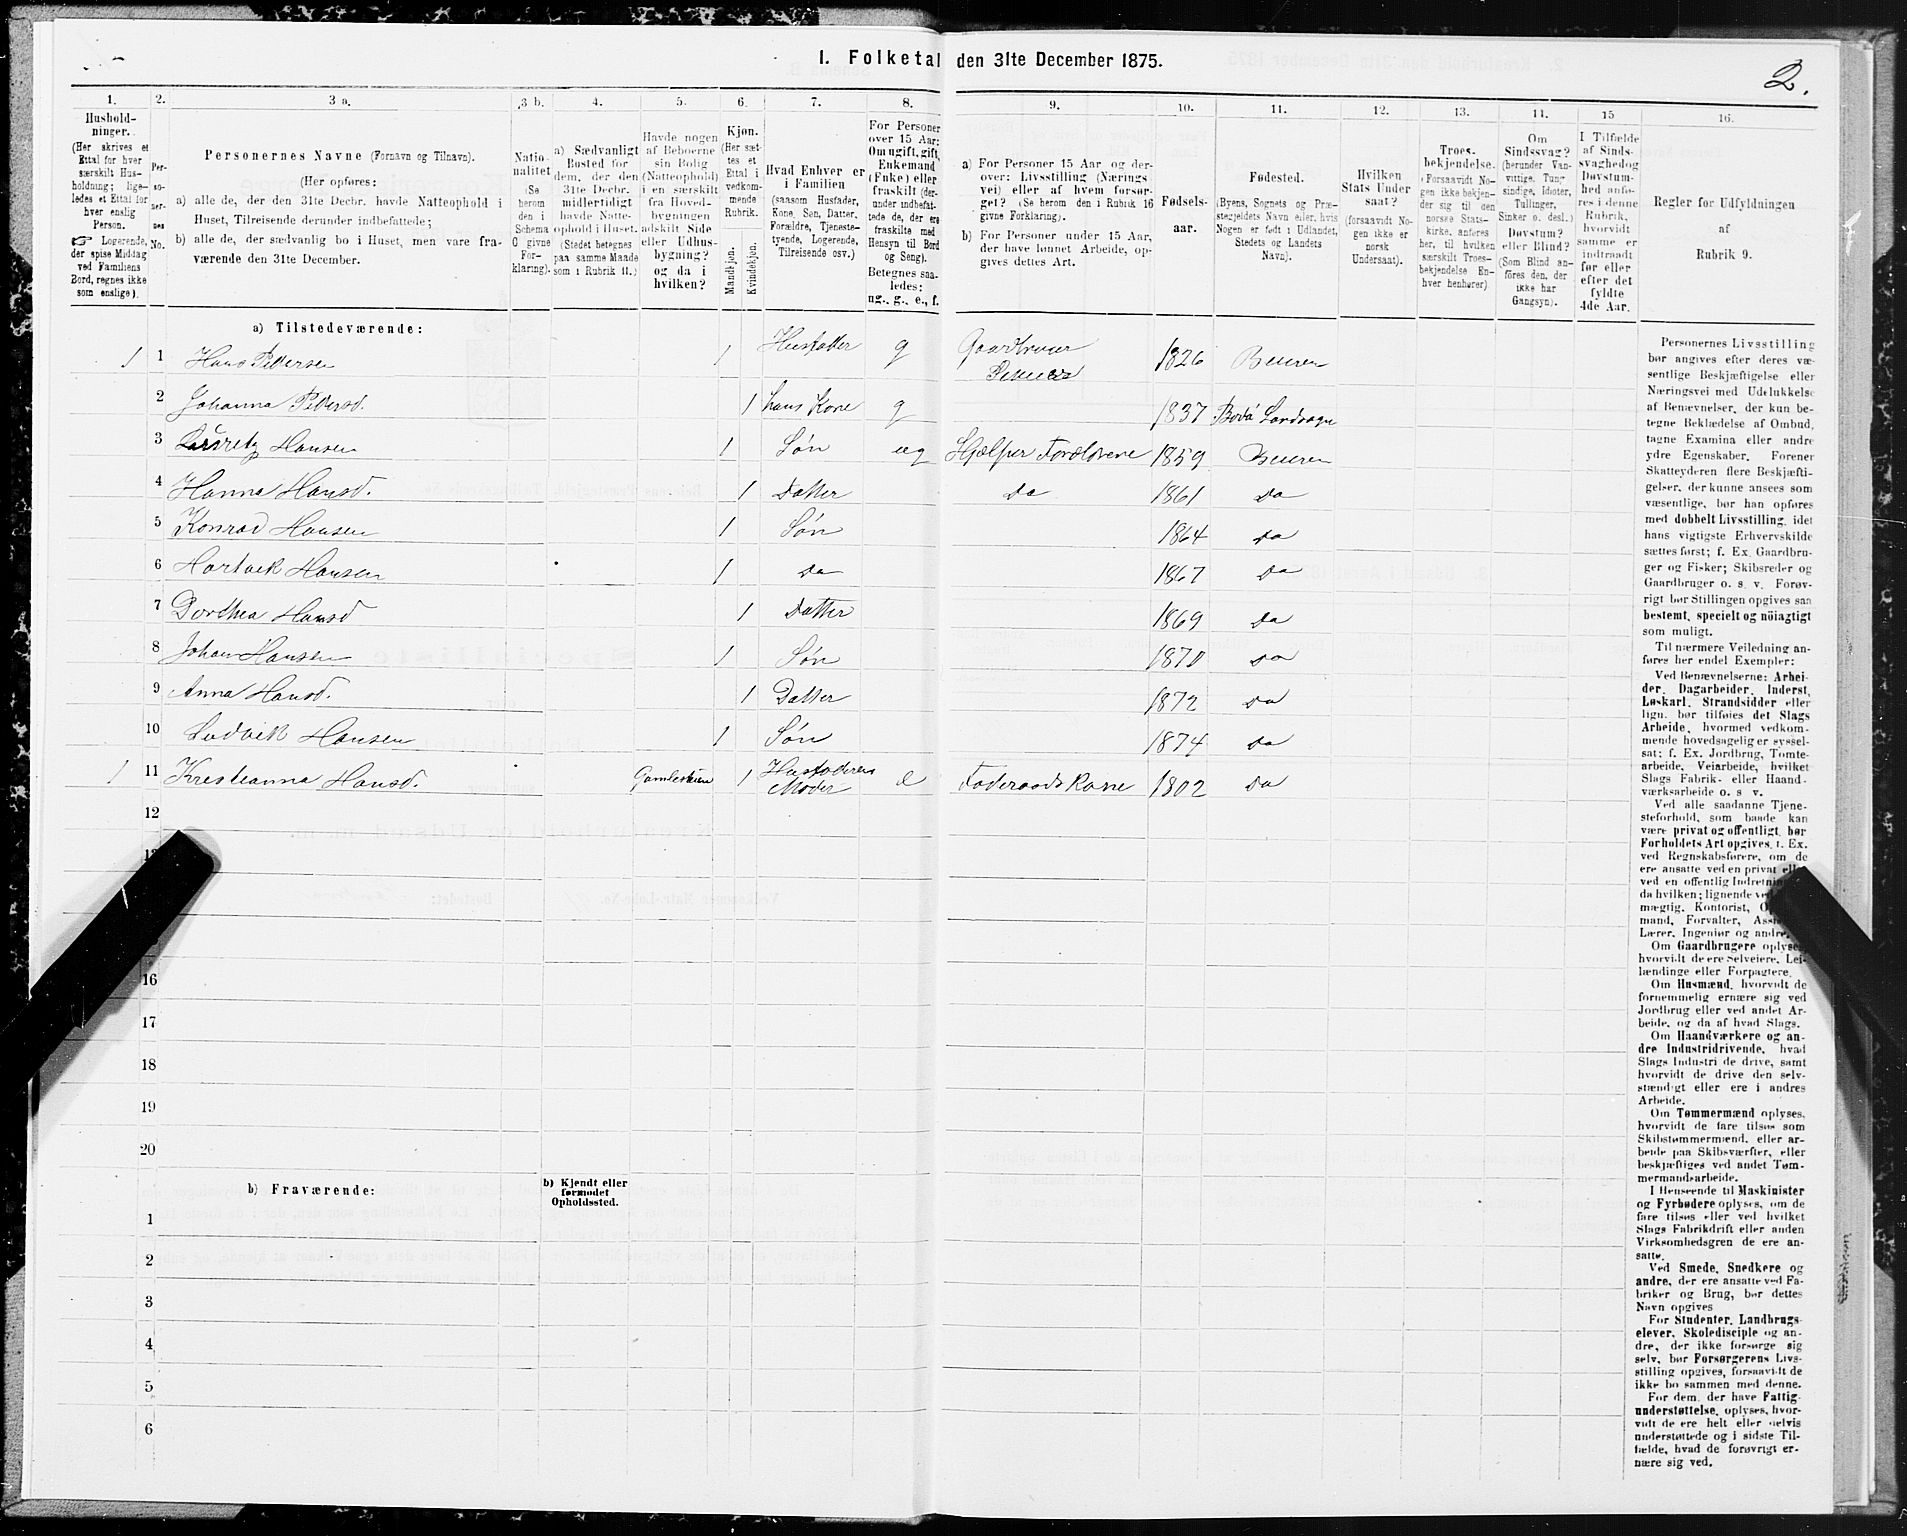 1. Folketal den 31te December 1875.
2.
1. 2. 3 a. 3 b. 4. 5. 6. 7. 8. 9. 10. 11. 12. 13. 14. 15 16.
Hushold-
ninger.
(Her skrives et
Ettal for hver
særskilt Hus-
holdning; lige-
ledes et Ettal for
hver enslig
Person.
☞ Logerende,
der spise Middag
ved Familiens
Bord, regnes ikke
som enslige).
Per-
so-
ner-
nes
No.
Personernes Navne (Fornavn og Tilnavn).
(Her opføres:
a) alle de, der den 31te Decbr. havde Natteophold i
Huset, Tilreisende derunder indbefattede;
b) alle de, der sædvanlig bo i Huset, men vare fra-
værende den 31te December.
Natio-
nalitet
(Se
herom
den i
Schema
C givne
For-
klaring).
a) Sædvanligt
Bosted for
dem, der den
31te Decbr.
midlertidigt
havde Natte-
ophold i Huset.
(Stedet betegnes
paa samme Maade
som i Rubrik 11.)
Havde nogen
af Beboerne
sin Bolig
(Natteophold)
i en særskilt
fra Hoved-
bygningen
adskilt Side
eller Udhus-
bygning?
og da i
hvilken?
Kjøn.
(Her sæt-
tes et
Ettal i
vedkom-
mende
Rubrik.
Mandkjøn.
Kvindekjøn.
Hvad Enhver er
i Familien
(saasom Husfader,
Kone, Søn, Datter,
Forældre, Tjeneste-
tyende, Logerende,
Tilreisende osv.)
For Personer
over 15 Aar:
Om ugift, gift,
Enkemand
(Enke) eller
fraskilt (der-
under indbefat-
tede de, der ere
fraskilte med
Hensyn til Bord
og Seng).
Betegnes saa-
ledes:
ug., g., e., f.
a) For Personer 15 Aar og der-
over: Livsstilling (Nærings-
vei) eller af hvem forsør-
get? (Se herom den i Rubrik 16
givne Forklaring).
b) For Personer under 15 Aar,
der have lønnet Arbeide, op-
gives dettes Art.
Fødsels-
aar.
Fødested.
(Byens, Sognets og Præ-
stegjeldets Navn eller, hvis
Nogen er født i Udlandet,
Stedets og Landets
Navn).
Hvilken
Stats Under
saat?
(forsaavidt No-
gen ikke er
norsk
Undersaat).
Troes-
bekjendelse.
(Forsaavidt No-
gen ikke bekjen-
der sig til den
norske Stats-
kirke, anføres
her, til hvilken
særskilt Troes-
bekjendelse En-
hver henhører)
Om
Sindssvag?
(herunder Van-
vittige, Tung-
sindige, Idioter,
Tullinger,
Sinker o. desl.)
Døvstum?
eller Blind?
(Som Blind an-
føres den, der
ikke har
Gangsyn).
I Tilfælde
af Sinds-
svaghed og
Døvstum-
hed anfø-
res i denne
Rubrik,
hvorvidt
samme er
indtraadt
før eller
efter det
fyldte
4de Aar.
Regler for Udfyldningen
af
Rubrik 9.
a) Tilstedeværende:
1 1 Hans Pedersen 1 Husfader g Gaardbruger 1826 Beieren
2 Johanna Pedersd. 1 hans Kone g 1837 Bodø Landsogn
3 Lauretz Hansen 1 Søn ug Hjælper Forældrene 1859 Beieren
4 Hanna Hansd. 1 Datter Do 1861 Do
5 Konrad Hansen 1 Søn 1864 Do
6 Hartvik Hansen 1 Do 1867 Do
7 Dorthea Hansd 1 Datter 1869 Do
8 Johan Hansen 1 Søn 1870 Do
9 Anna Hansd. 1 Datter 1872 Do
10 Ludvik Hansen 1 Søn 1874 Do
1 11 Kristianna Hansd. 1 Husfaderens Moder e Føderaads Kone 1802 Do
12
16
17
18
19
20
b) Fraværende:
b) Kjendt eller
formodet
Opholdssted.
1
2
3
4
5
6
Personernes Livsstilling
bør angives efter deres væ-
sentlige Beskjæftigelse eller
Næringsvei med Udelukkelse
af Benævnelser, der kun be-
tegne Beklædelse af Ombud,
tagne Examina eller andre
ydre Egenskaber. Forener
Skatteyderen flere Beskjæfti-
gelser, der kunne ansees som
væsentlige, bør han opføres
med dobbelt Livsstilling, idet
hans vigtigste Erhvervskilde
sættes først; f. Ex. Gaardbru-
ger og Fisker; Skibsreder og
Gaardbruger o. s. v. Forøv-
rigt bør Stillingen opgives saa
bestemt, specielt og nöiagtigt
som muligt.
Til nærmere Veiledning an-
føres her endel Exempler:
Ved Benævnelserne: Arbei-
der, Dagarbeider, Inderst,
Løskarl, Strandsidder eller
lign. bør tilføies det Slags
Arbeide, hvormed vedkom-
mende hovedsagelig er syssel-
sat; f. Ex. Jordbrug, Tomte-
arbeide, Veiarbeide, hvilket
Slags Fabrik- eller Haand-
værksarbeide o. s. v.
Ved alle saadanne Tjene-
steforhold, som baade kan
være privat og offentligt, bør
Forholdets Art opgives, f. Ex.
ved Regnskabsførere, om de
ere ansatte ved en privat
ved en offentlig
da hvilken; lignende
mægtig, Kontorist,
mand, Forvalter,
Lærer, Ingeniør og andre.
Om Gaardbrugere oplyses,
hvorvidt de ere Selveiere, Lei-
lændinge eller Forpagtere.
Om Husmænd, hvorvidt de
fornemmelig ernære sig ved
Jordbrug eller ved andet Ar-
beide, og da af hvad Slags.
Om Haandværkere og an-
dre Industridrivende, hvad
Slags Industri de drive, samt
hvorvidt de drive den selv-
stændigt eller ere i andres
Arbeide.
Om Tømmermænd oplyses,
hvorvidt de fare tilsøs som
Skibstømmermænd, eller ar-
beide paa Skibsværfter, eller
beskjæftiges ved andet Tøm-
mermandsarbeide.
I Henseende til Maskinister
og Fyrbødere oplyses, om de
fare tilsøs eller ved hvilket
Slags Fabrikdrift eller anden
Virksomhedsgren de ere an-
satte.
Ved Smede, Snedkere og
andre, der ere ansatte ved Fa-
briker og Brug, bør dettes
Navn opgives
For Studenter, Landbrugs-
elever, Skoledisciple og an-
dre, der ikke forsørge sig
selv, bør Forsørgerens Livs-
stilling opgives, forsaavidt de
ikke bo sammen med denne.
For dem, der have Fattig-
understøttelse, oplyses, hvor-
vidt de ere helt eller delvis
understøttede og i sidste Til-
fælde, hvad de forøvrigt er-
nære sig ved.